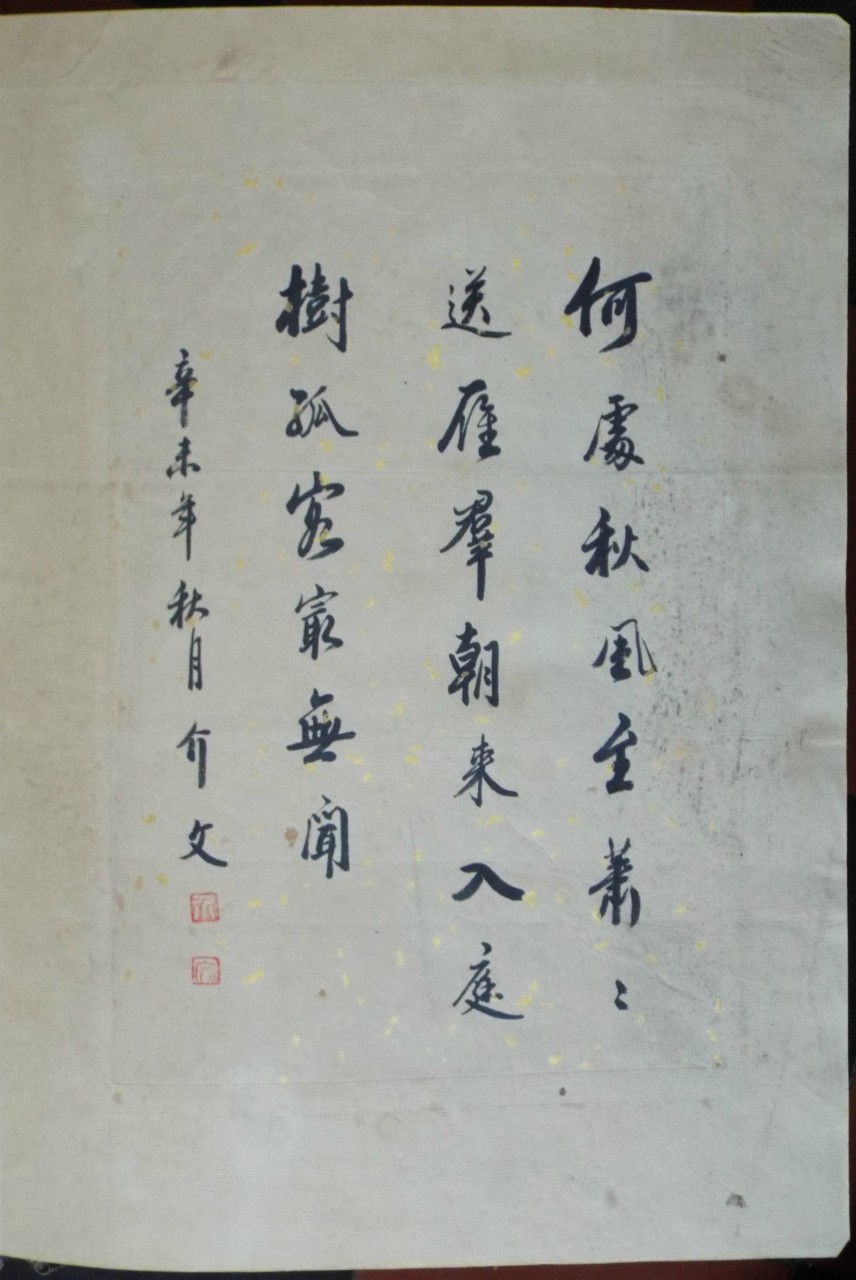 何處秋風至蕭〻
送雁羣朝來入庭
樹孤客冣無聞
辛未年秋月介文